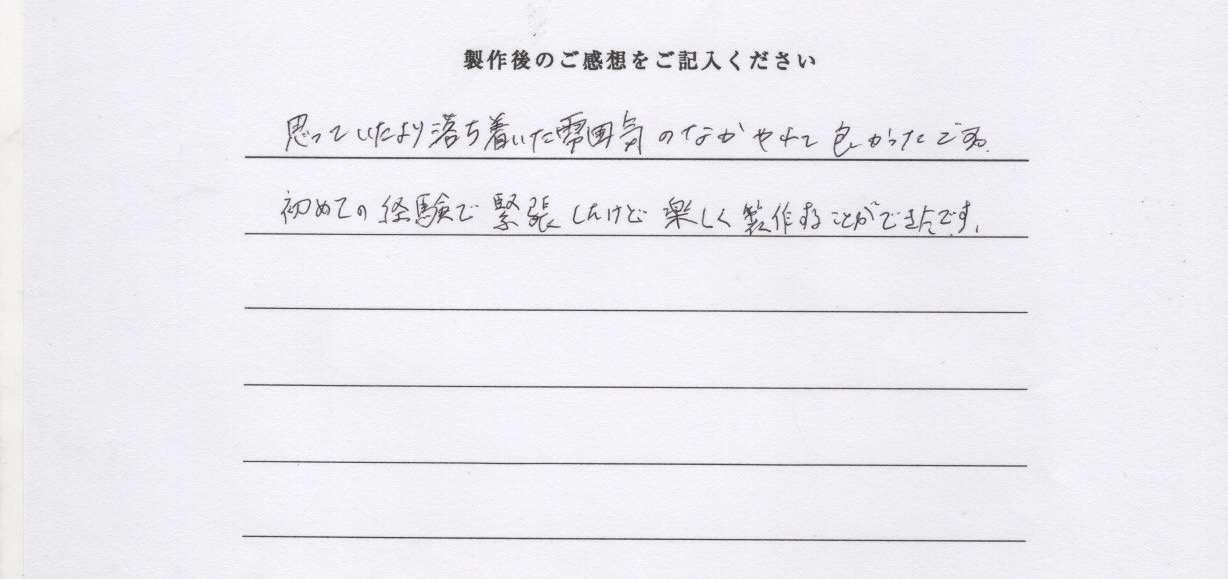 製作後のご感想をご記入ください
思っていたより落ち着いた雰囲気のなかやれて良かったです。
初めての経験で緊張したけど楽しく製作することができたです。